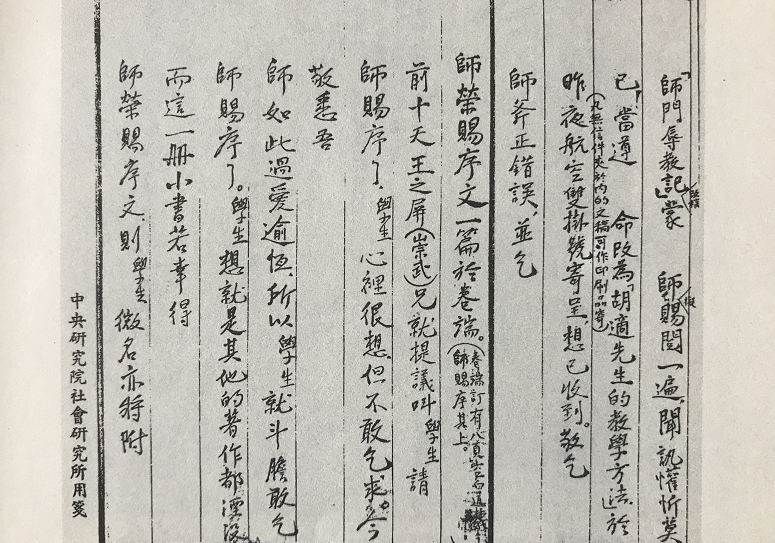 「師門辱教記」蒙 師賜閱一遍,聞訊懽忻莫
已,當遵 命改為「胡適先生的教學方法」於
(凡無信件夾於內的文稿可作印刷品寄)
昨夜航空雙掛號寄呈,想已收到。敬乞
師斧正錯誤,並乞
師榮賜序文一篇於卷端。
師賜序其上。
前十天王之屏(崇武)兄就提議叫學生請
師賜序了,學生心裡很想,但不敢乞求。今
敬悉吾
師如此過愛逾恆,所以學生就斗膽敢乞
師賜序了。學生想就是其他的著作都湮沒
而這一冊小書若幸得
師榮賜序文,則學生微名亦將附
中央研究院社會研究所用箋